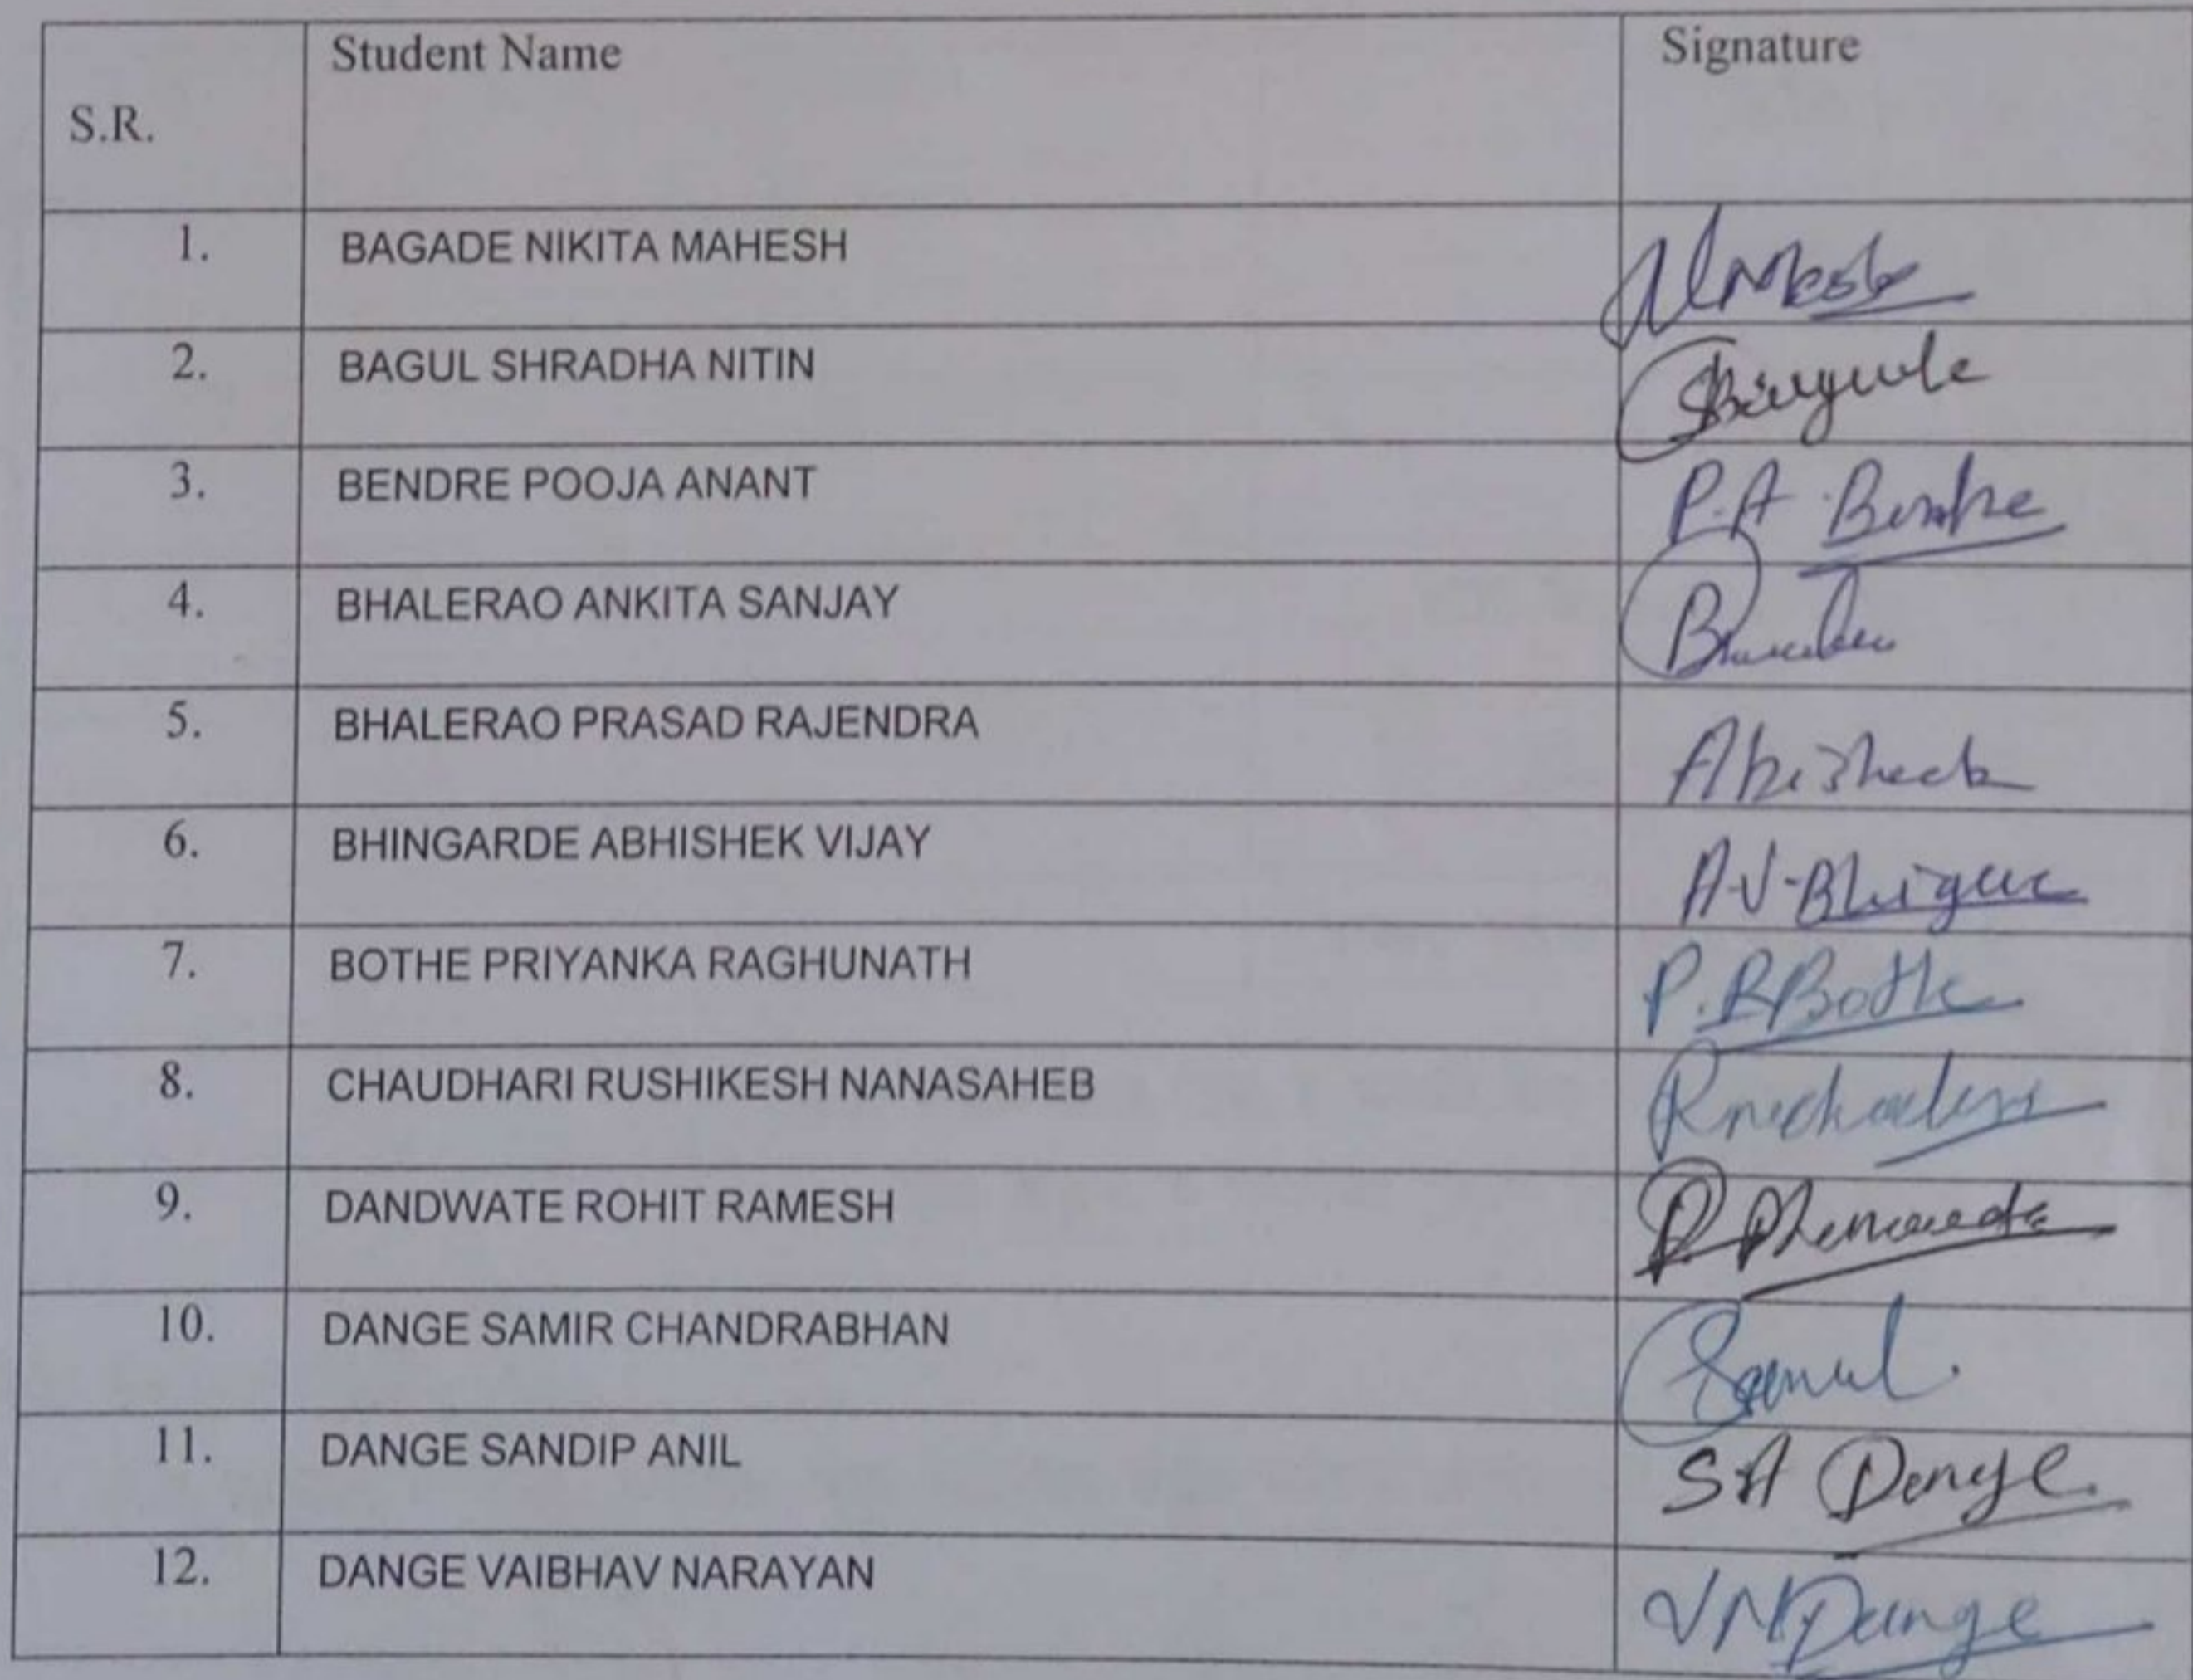 Student Name Signature
S.R.
1. BAGADE NIKITA MAHESH
2. BAGUL SHRADHA NITIN
3. BENDRE POOJA ANANT P.A
4. BHALERAO ANKITA SANJAY
5. BHALERAO PRASAD RAJENDRA
6. BHINGARDE ABHISHEK VIJAY A.V.
7. BOTHE PRIYANKA RAGHUNATH P.R Bothe
8. CHAUDHARI RUSHIKESH NANASAHEB
9. DANDWATE ROHIT RAMESH
10. DANGE SAMIR CHANDRABHAN
11. DANGE SANDIP ANIL S.A Dange
12. DANGE VAIBHAV NARAYAN VN Dange